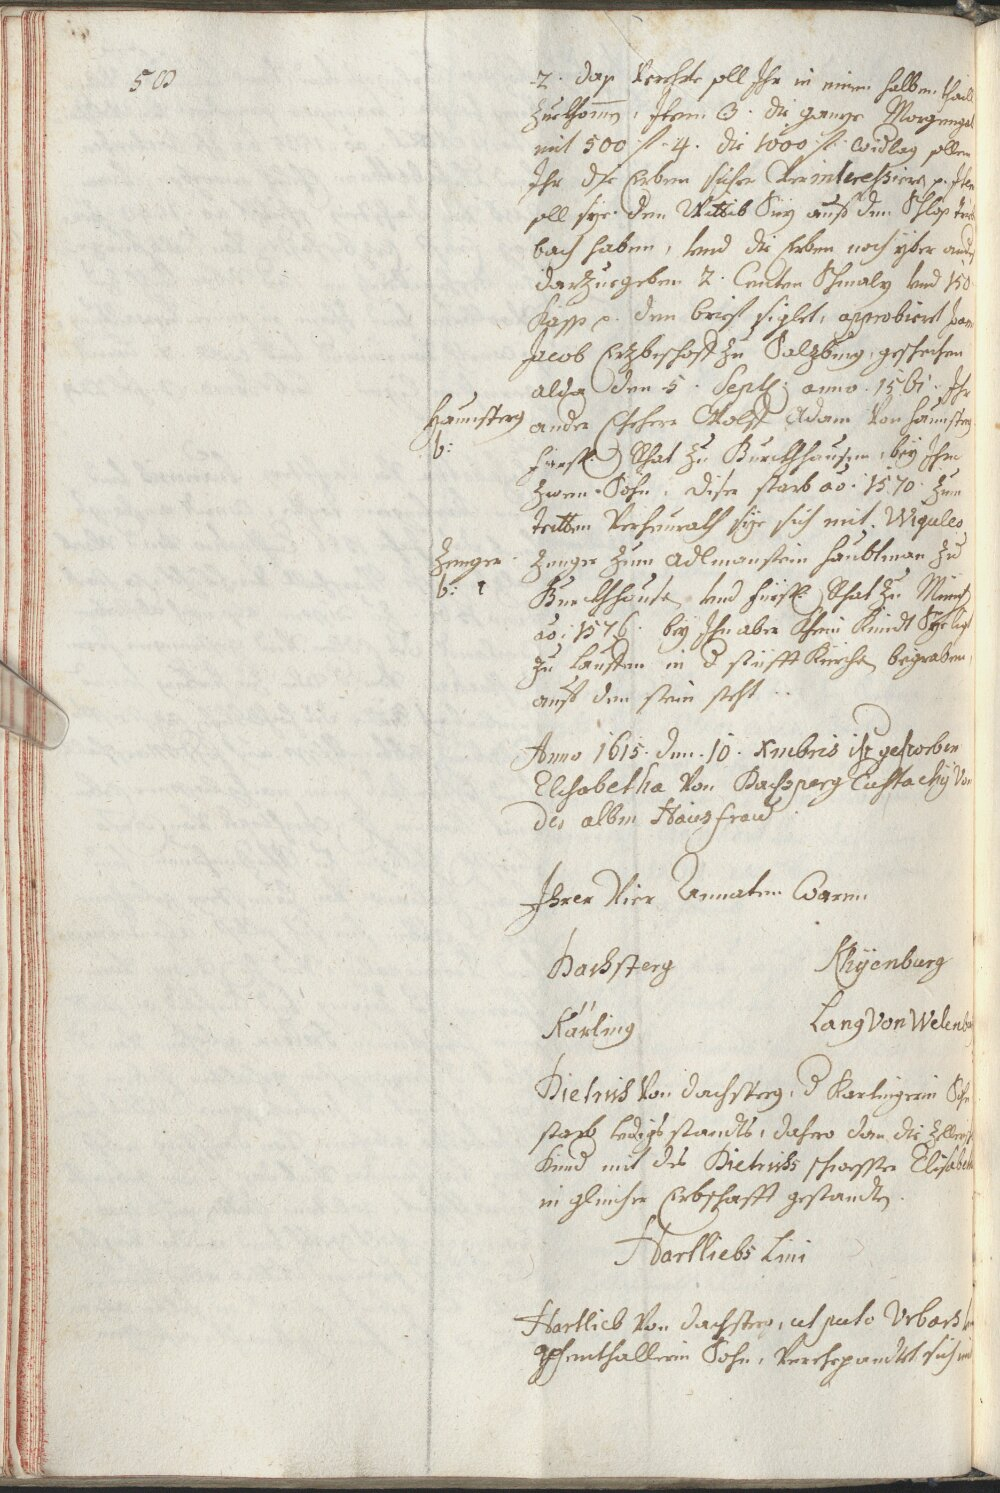 503
2. daß Verehrte soll Ihr in einem halben thaill
zuekhomen, Item 3. die ganze Morgengab
mit 500 fl. 4. die 1000 fl. widlag sollen
Ihr die Erben sicher Verinteressiern p. Item
soll sye den Wittib Siz auß dem Schloß
bach haben, vnd die Erben noch yber
darzuegeben 2. Centen Schmalz vnd 150
Käß p. den brief siglet, approbiert
Jacob Erzbischoff zu Salzburg, geschehen
alda den 5. Septb: anno 1561. Ihr
Haunsperg
ander Eheherr Wolf Adam Von Haunsperg
b:
fürstl: Rhat zu Burckhhausen, bey Ihm
zwen Söhn, diser starb ao. 1570. zum
tritten Verheurath sye sich mit Wigules
Zenger
zenger zum Adlmanstein haubtman zu
b: 1
Burckhhausen vnd fürstl: Rhat zu
ao: 1576. bey Ihm aber khein Kindt
zu Lauffen in d stüfft Kürchen begraben,
auf dem stein steht ..
Anno 1615. den. 10. Xmbris ist gestorben
Elisabetha Von Dachsperg Eustachÿ Von
der albm Hausfrau
Ihrer Vier Annaten Waren
Dachsperg Khÿenburg
Kärling Lang Von Welenburg
Dietrich Von Dachsperg, d Karlingerin Sohn
starb ledigs standts, dahero dan die
Kind mit des Dietrichs schwester Elisabeth
in gleicher Erbschafft gestandten.
Hartliebs Lini
Hartlieb Von Dachsperg, ut puto Vrbach
Sohn, Verehepandtet sich mit